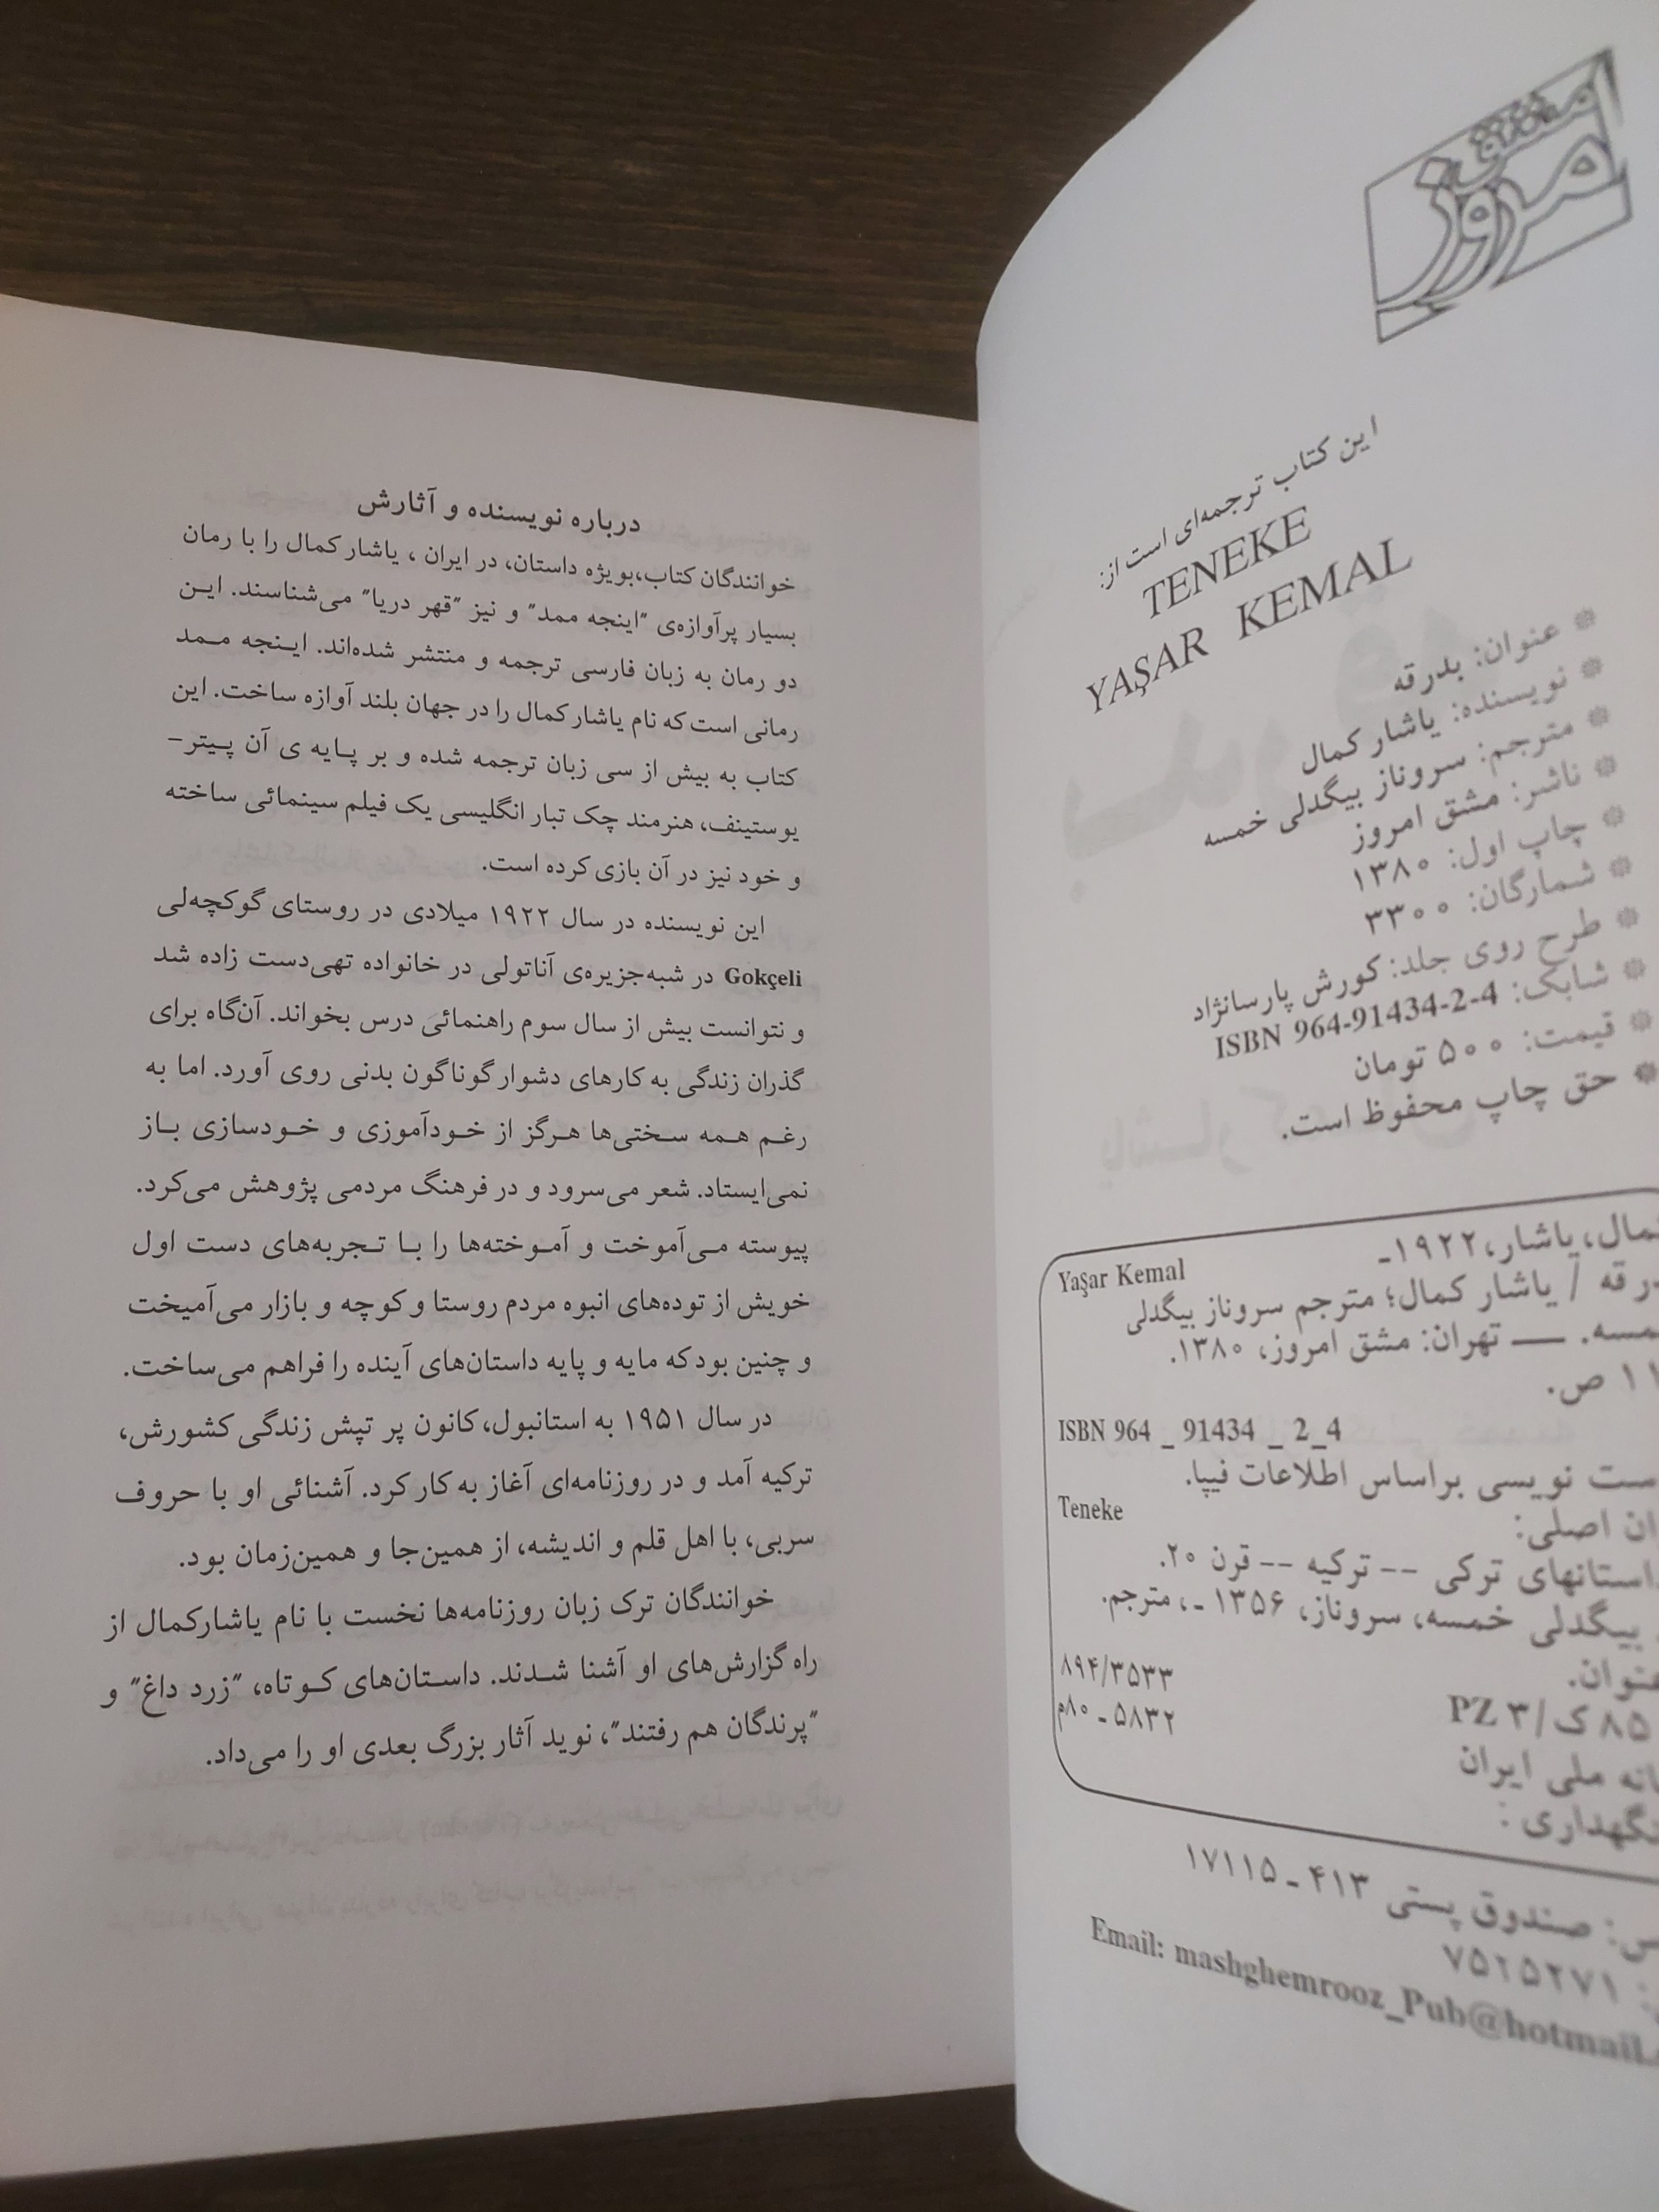 مشق
امروز
این کتاب ترجمه‌ای است از:
TENEKE
YAŞAR KEMAL
* عنوان: بدرقه
* نویسنده: یاشار کمال
* مترجم: سروناز بیگدلی خمسه
* ناشر: مشق امروز
* چاپ اول: ۱۳۸۰
* شمارگان: ۳۳۰۰
* طرح روی جلد: کورش پارسانژاد
* شابک: ISBN 964-91434-2-4
* قیمت: ۵۰۰ تومان
* حق چاپ محفوظ است.
یاشار، ۱۹۲۲ـ
Yaşar Kemal
/ یاشار کمال؛ مترجم سروناز بیگدلی
ـــ تهران: مشق امروز، ۱۳۸۰.
ص.
ISBN 964 _ 91434 _ 2_4
نویسی براساس اطلاعات فیپا.
اصلی:
Teneke
ترکی -- ترکیه -- قرن ۲۰.
بیگدلی خمسه، سروناز، ۱۳۵۶ ـ، مترجم.
۸۹۴/۳۵۳۳
PZ ۳/ک ۸۵
۵۸۳۲ ـ ۸۰م
ملی ایران
صندوق پستی ۴۱۳ ـ ۱۷۱۱۵
۷۵۲۵۲۷۱
Email: mashghemrooz_Pub@hotmail.
درباره نویسنده و آثارش
خوانندگان کتاب،بویژه داستان، در ایران ، یاشار کمال را با رمان
بسیار پرآوازه‌ی "اینجه ممد" و نیز "قهر دریا" می‌شناسند. این
دو رمان به زبان فارسی ترجمه و منتشر شده‌اند. اینجه ممد
رمانی است که نام یاشار کمال را در جهان بلند آوازه ساخت. این
کتاب به بیش از سی زبان ترجمه شده و بر پایه ی آن پیتر-
یوستینف، هنرمند چک تبار انگلیسی یک فیلم سینمائی ساخته
و خود نیز در آن بازی کرده است.
این نویسنده در سال ۱۹۲۲ میلادی در روستای گوکچه‌لی
Gokçeli در شبه‌جزیره‌ی آناتولی در خانواده تهی‌دست زاده شد
و نتوانست بیش از سال سوم راهنمائی درس بخواند. آن‌گاه برای
گذران زندگی به کارهای دشوار گوناگون بدنی روی آورد. اما به
رغم همه سختی‌ها هرگز از خودآموزی و خودسازی باز
نمی‌ایستاد. شعر می‌سرود و در فرهنگ مردمی پژوهش می‌کرد.
پیوسته می‌آموخت و آموخته‌ها را با تجربه‌های دست اول
خویش از توده‌های انبوه مردم روستا و کوچه و بازار می‌آمیخت
و چنین بود که مایه و پایه داستان‌های آینده را فراهم می‌ساخت.
در سال ۱۹۵۱ به استانبول، کانون پر تپش زندگی کشورش،
ترکیه آمد و در روزنامه‌ای آغاز به کار کرد. آشنائی او با حروف
سربی، با اهل قلم و اندیشه، از همین‌جا و همین‌زمان بود.
خوانندگان ترک زبان روزنامه‌ها نخست با نام یاشارکمال از
راه گزارش‌های او آشنا شدند. داستان‌های کوتاه، "زرد داغ" و
"پرندگان هم رفتند"، نوید آثار بزرگ بعدی او را می‌داد.